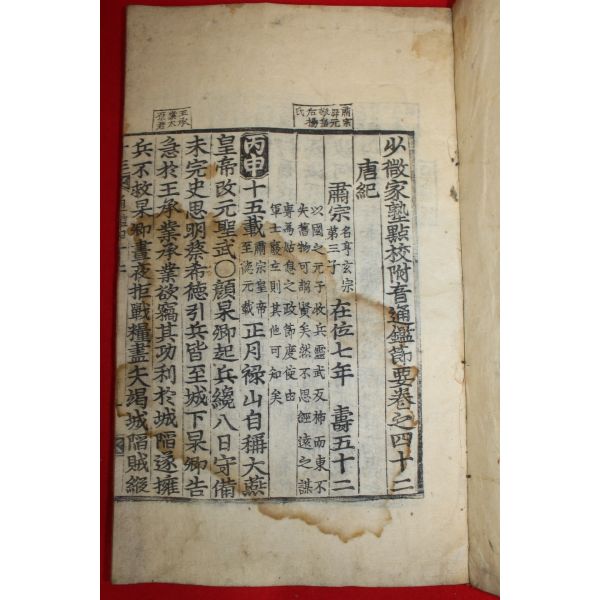 少微家塾點校附音通鑑節要卷之四十二
唐紀
肅宗 名亨玄宗第三子 在位七年 壽五十二
以國之元子收兵靈武反旆而東不
失舊物可謂賢矣然不思經遠之謀
專爲姑息之政節度使由
軍士廢立則其他可知矣
丙申 十五載 肅宗皇帝至德元載 正月祿山自稱大燕
皇帝改元聖武○顔杲卿起兵纔八日守備
未完史思明蔡希德引兵皆至城下杲卿告
急於王承業承業欲竊其功利於城陷遂擁
兵不救杲卿晝夜拒戰糧盡矢竭城陷賊縱